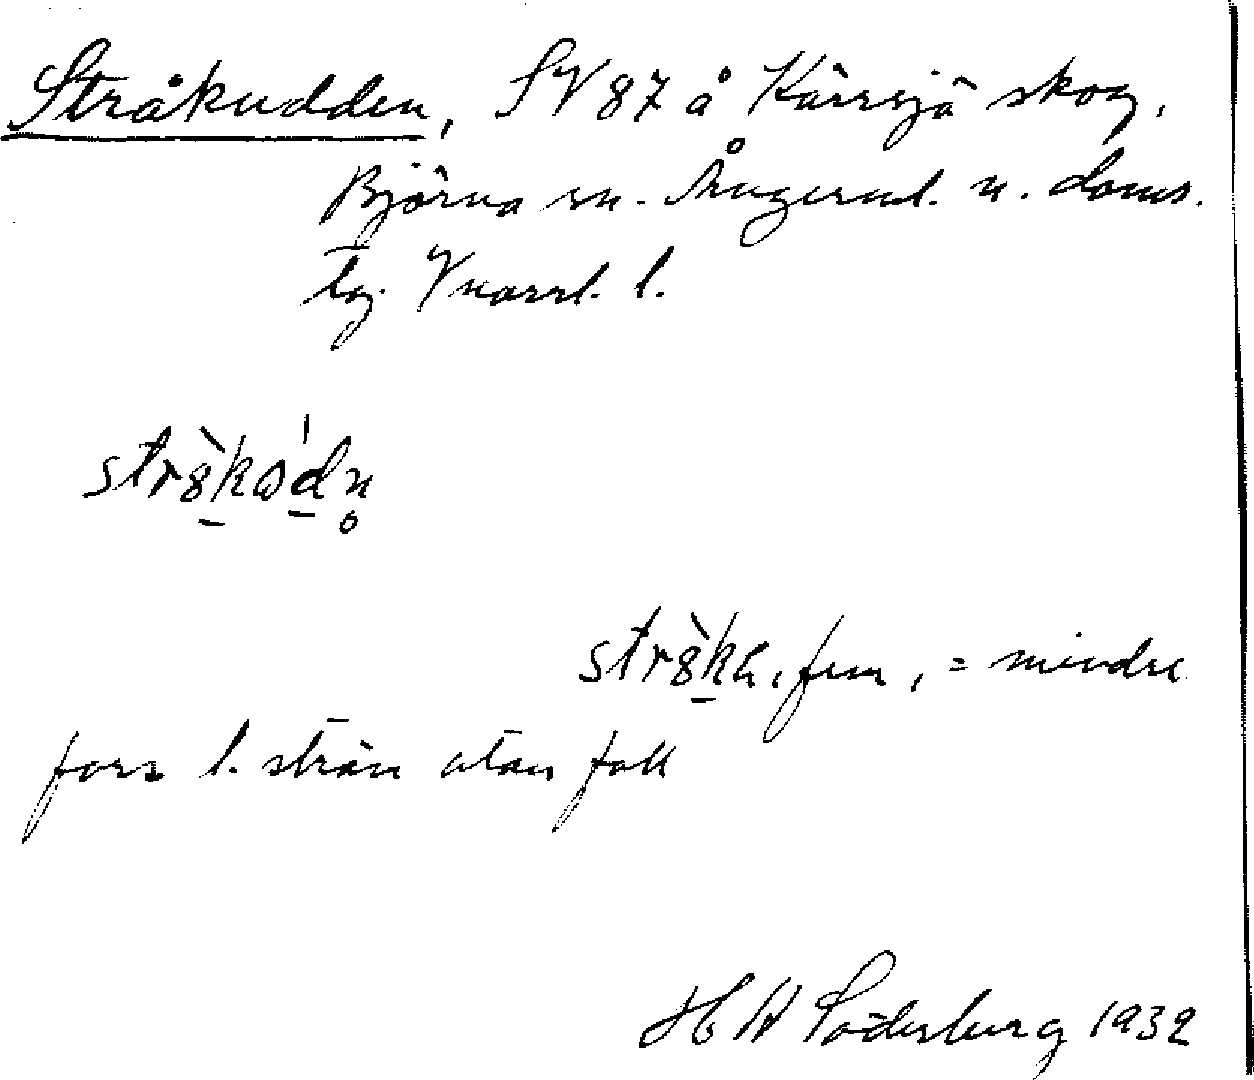 Stråkudden, SV 87 å Kärrsjö skog,
Björna sn. Ångerml. n. doms.
lag. Vnorrl. l.
strö̀kɷd́n̥
strö̀ka, fem, = mindre
fors l. strän utan fall
H W Söderberg 1932